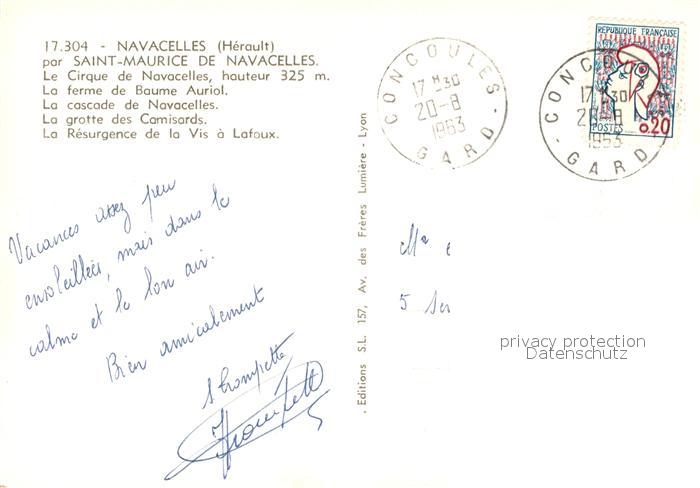 17.304 - NAVACELLES (Hérault)
par SAINT-MAURICE DE NAVACELLES.
Le Cirque de Navacelles, hauteur 325 m.
La ferme de Baume Auriol.
La cascade de Navacelles.
La grotte des Camisards.
La Résurgence de la Vis à Lafoux.
CONCOULES
17 H 30
20-8
1963
GARD
REPUBLIQUE FRANÇAISE
POSTES
0,20
CONCOULES
17 H 30
20-8
1963
GARD
Vacances assez peu
ensoleillées, mais dans le
calme et le bon air.
Bien amicalement
. Editions S.L. 157, Av. des Frères Lumière - Lyon
5
privacy protection
Datenschutz